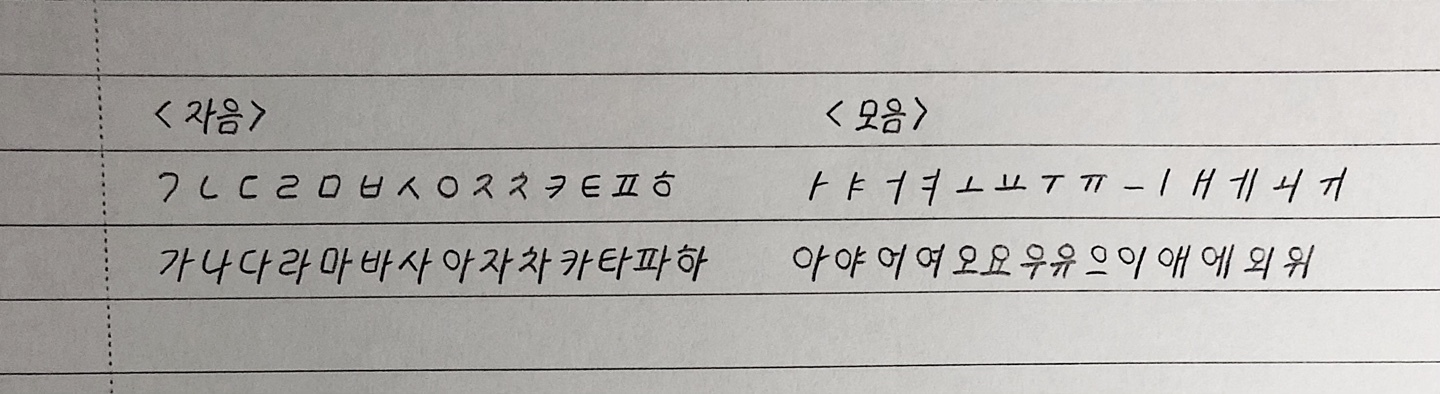 <자음> <모음>
ㄱㄴㄷㄹㅁㅂㅅㅇㅈㅊㅋㅌㅍㅎ ㅏㅑㅓㅕㅗㅛㅜㅠㅡㅣㅐㅔㅚㅟ
가나다라마바사아자차카타파하 아야어여오요우유으이애에외위